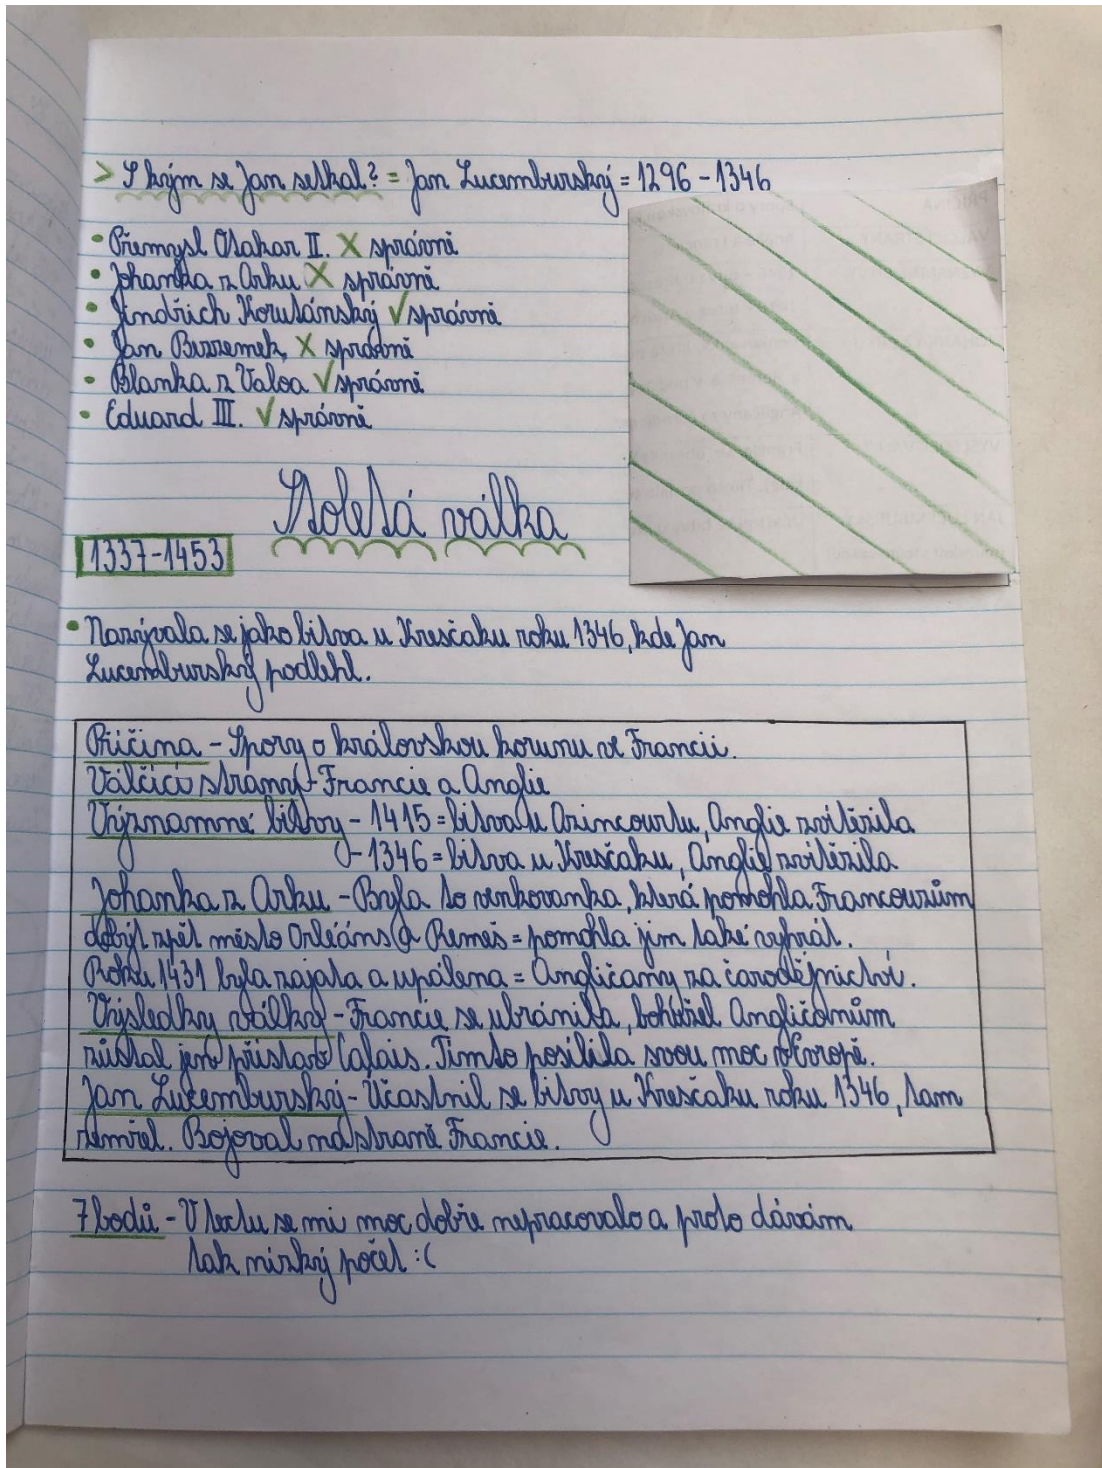 > S kým se Jan setkal? = Jan Lucemburský = 1296 - 1346
• Přemysl Otakar II. X správně
• Johanka z Arku X správně
• Jindřich Korutánský ✓ správně
• Jan Bezzemek X správně
• Blanka z Valoa ✓ správně
• Eduard III. ✓ správně
Stoletá válka
1337-1453
• Nazývala se jako bitva u Kresčaku roku 1346, kde Jan
Lucemburský podlehl.
Příčina - Spory o královskou korunu ve Francii.
Válčící strany - Francie a Anglie
Významné bitvy - 1415 = bitva u Azincourtu, Anglie zvítězila
- 1346 = bitva u Kresčaku, Anglie zvítězila
Johanka z Arku - Byla to venkovanka, která pomohla Francouzům
dobýt zpět město Orleáns a Remeš = pomohla jim také vyhrát.
Roku 1431 byla zajata a upálena = Angličany za čarodějnictví.
Výsledky války - Francie se ubránila, bohužel Angličanům
zůstal jen přístav Calais. Tímto posílila svou moc v Evropě.
Jan Lucemburský - Účastnil se bitvy u Kresčaku roku 1346, tam
zemřel. Bojoval na straně Francie.
7 bodů - V textu se mi moc dobře nepracovalo a proto dávám
tak nízký počet :(